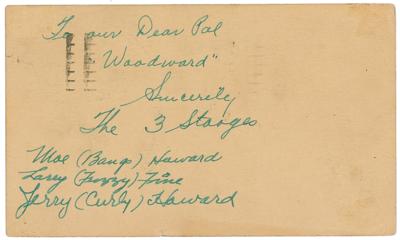 To our Dear Pal
Woodward"
Sincerely
The 3 Stooges
Moe (Bangs) Howard
Larry (Fuzzy) Fine
Jerry (Curly) Howard